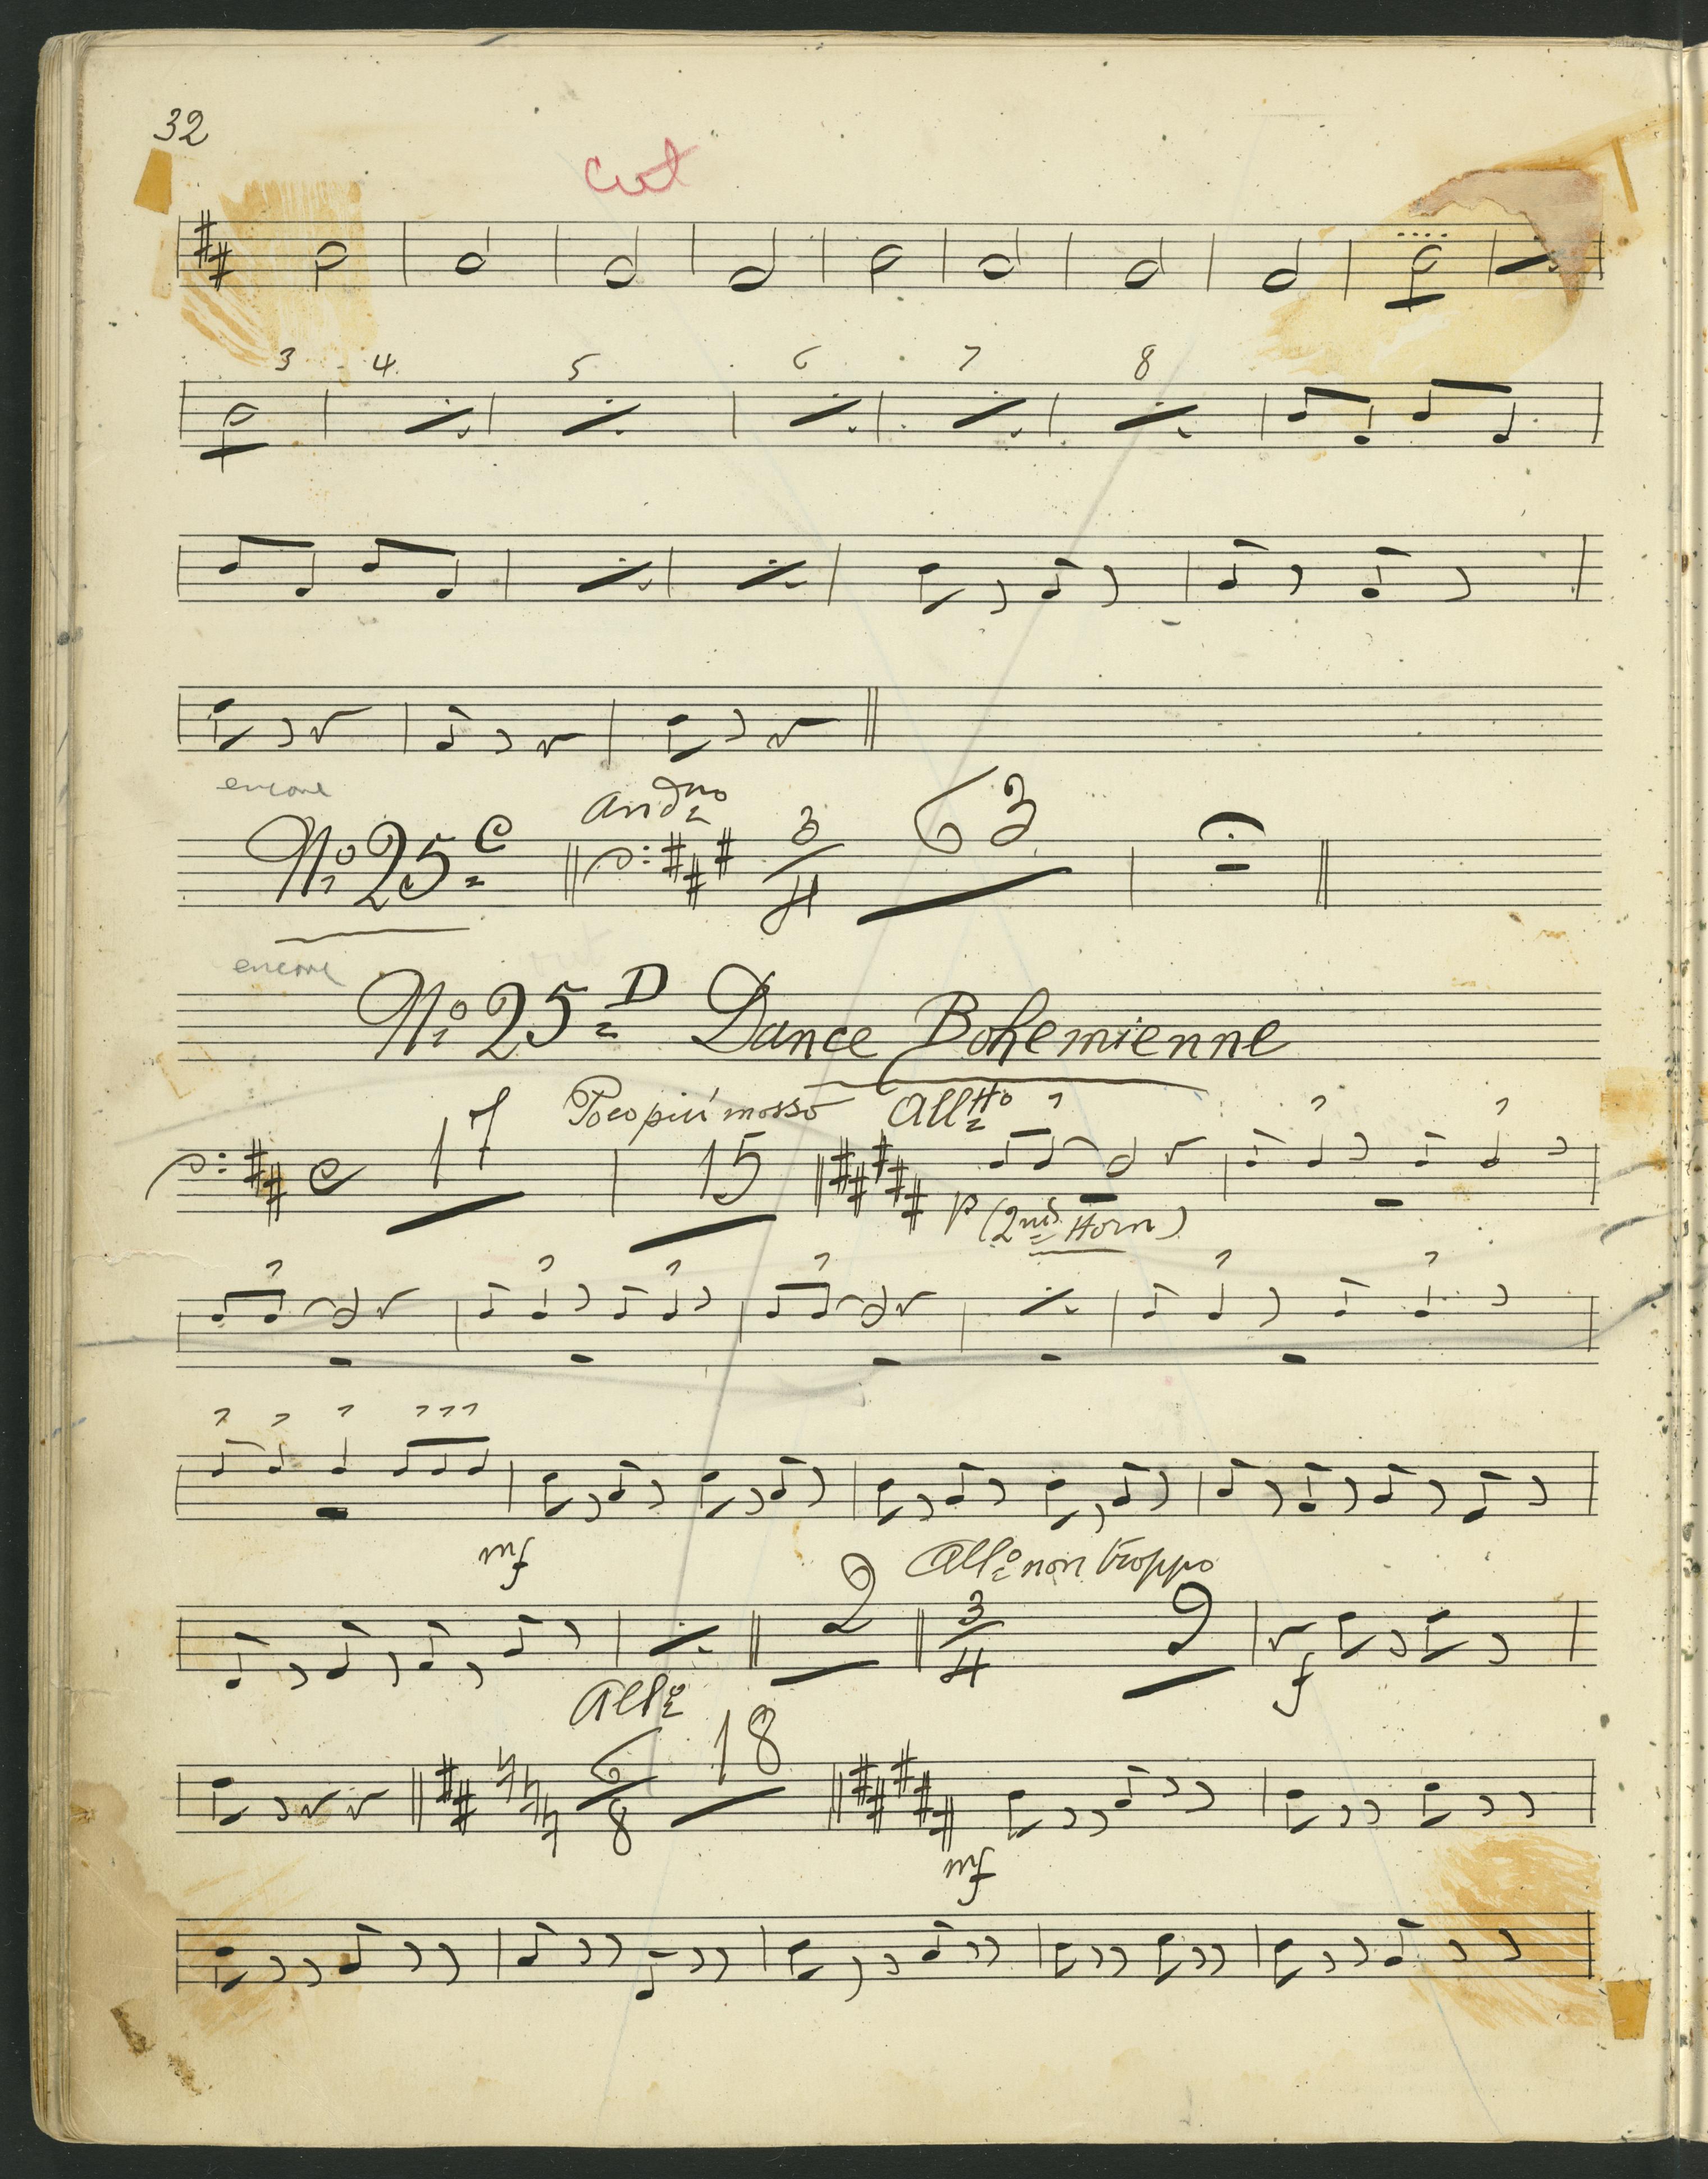 32
cut
3 4 5 6 7 8
encore
Andno
No 25 C 3/4 63
encore
No 25 D Dance Bohemienne
Poco piú mosso Alltto
C 17 15
p (2nd Horn)
mf
Allo non troppo
2 3/4 9
f
Allo
6/8 18
mf